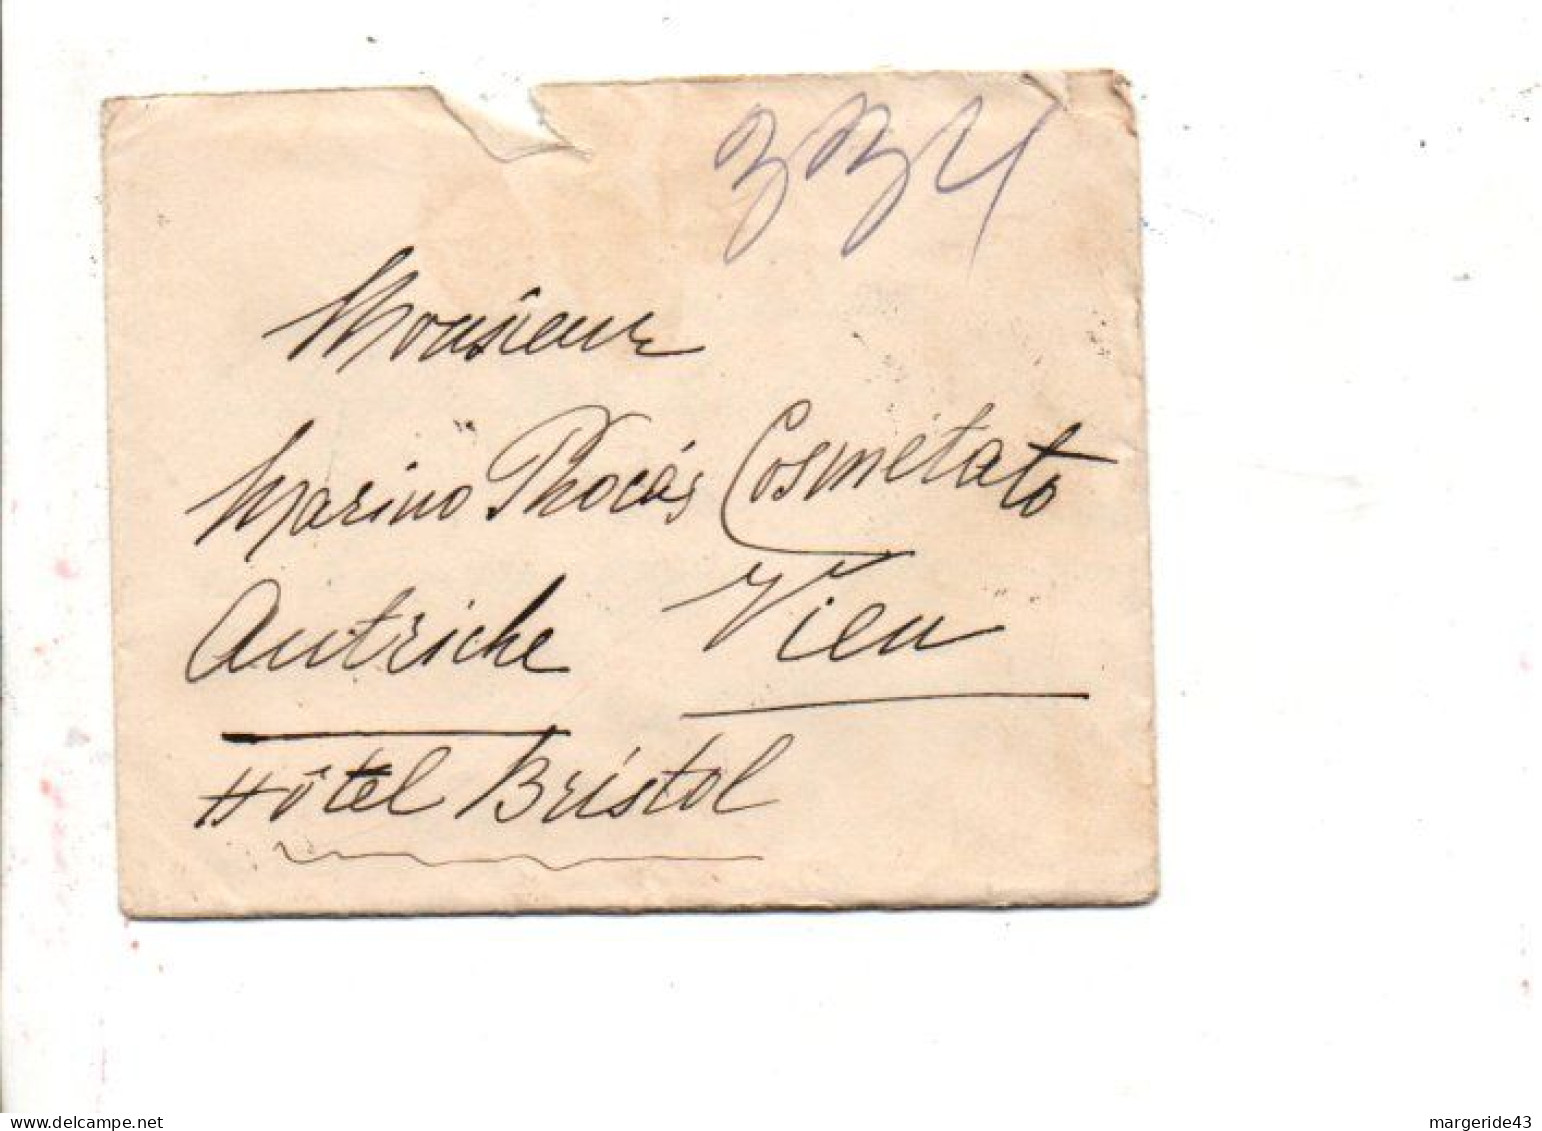 334
Monsieur
Marino Phocás Cosmetato
Autriche Vien
Hôtel Bristol
www.delcampe.net
margeride43